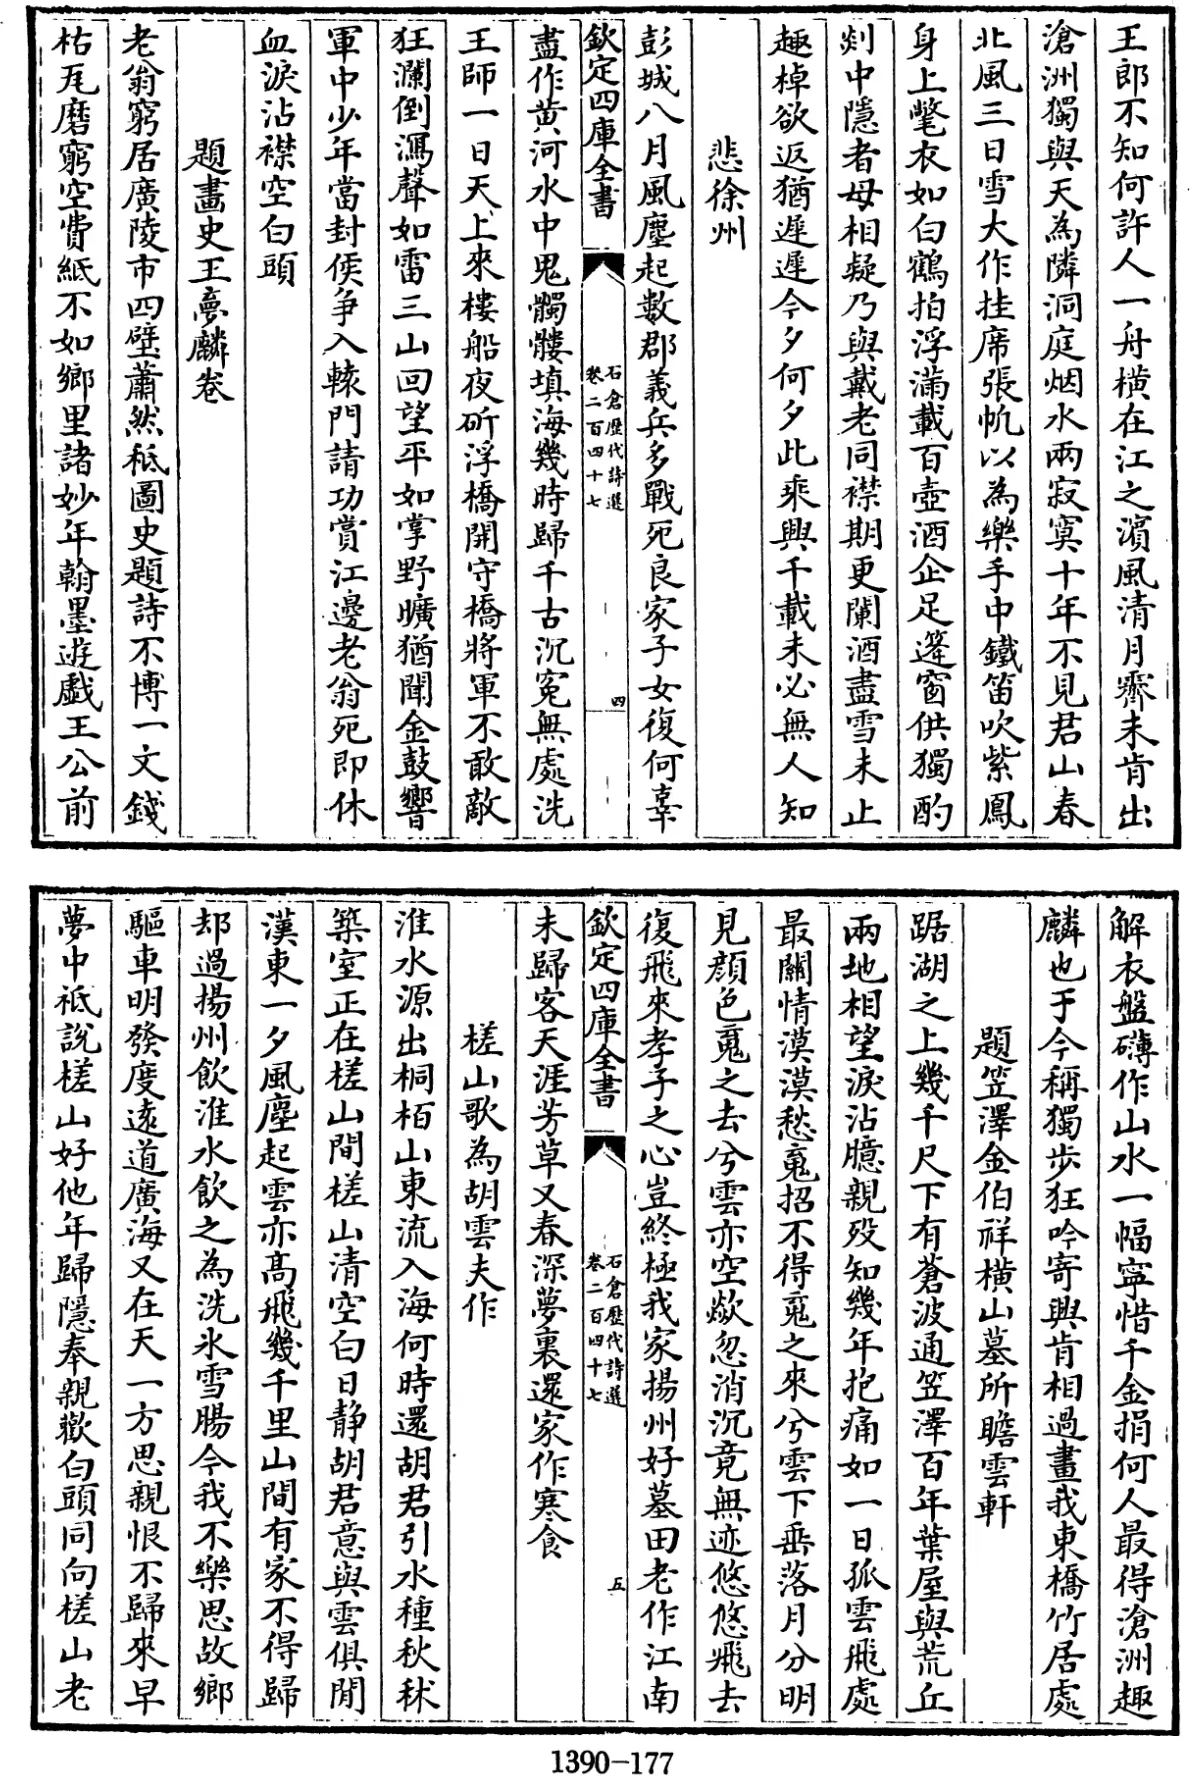 王郎不知何許人一舟横在江之濵風清月霽未肯出
滄洲獨與天為隣洞庭烟水兩寂寞十年不見君山春
北風三日雪大作挂席張帆以為樂手中鐵笛吹紫鳳
身上氅衣如白鶴拍浮滿載百壺酒企足篷窗供獨酌
剡中隱者母相疑乃與戴老同襟期更闌酒盡雪未止
趣棹欲返猶遲遲今夕何夕此乘興千載未必無人知
悲徐州
彭城八月風塵起數郡義兵多戰死良家子女復何辜
欽定四庫全書
石倉歷代詩選
卷二百四十七
四
盡作黄河水中鬼髑髏填海幾時歸千古沉寃無處洗
王師一日天上來樓船夜斫浮橋開守橋將軍不敢敵
狂瀾倒瀉聲如雷三山回望平如掌野曠猶聞金鼓響
軍中少年當封侯争入轅門請功賞江邊老翁死即休
血淚沾襟空白頭
題畫史王夢麟卷
老翁窮居廣陵市四壁蕭然秪圖史題詩不博一文錢
枯瓦磨窮空費紙不如鄉里諸妙年翰墨遊戲王公前
解衣盤礴作山水一幅寧惜千金捐何人最得滄洲趣
麟也于今稱獨步狂吟寄興肯相過畫我東橋竹居處
題笠澤金伯祥横山墓所瞻雲軒
踞湖之上幾千尺下有蒼波通笠澤百年葉屋與荒丘
兩地相望淚沾臆親殁知幾年抱痛如一日孤雲飛處
最關情漠漠愁䰟招不得䰟之來兮雲下垂落月分明
見顔色䰟之去兮雲亦空歘忽消沉竟無迹悠悠飛去
復飛來孝子之心豈終極我家揚州好墓田老作江南
欽定四庫全書
石倉歷代詩選
卷二百四十七
五
未歸客天涯芳草又春深夢裏還家作寒食
槎山歌為胡雲夫作
淮水源出桐栢山東流入海何時還胡君引水種秋秫
築室正在槎山間槎山清空白日静胡君意與雲俱閒
漢東一夕風塵起雲亦高飛幾千里山間有家不得歸
却過揚州飲淮水飲之為洗氷雪腸今我不樂思故鄉
驅車明發度逺道廣海又在天一方思親恨不歸來早
夢中祗說槎山好他年歸隱奉親歡白頭同向槎山老
1390-177